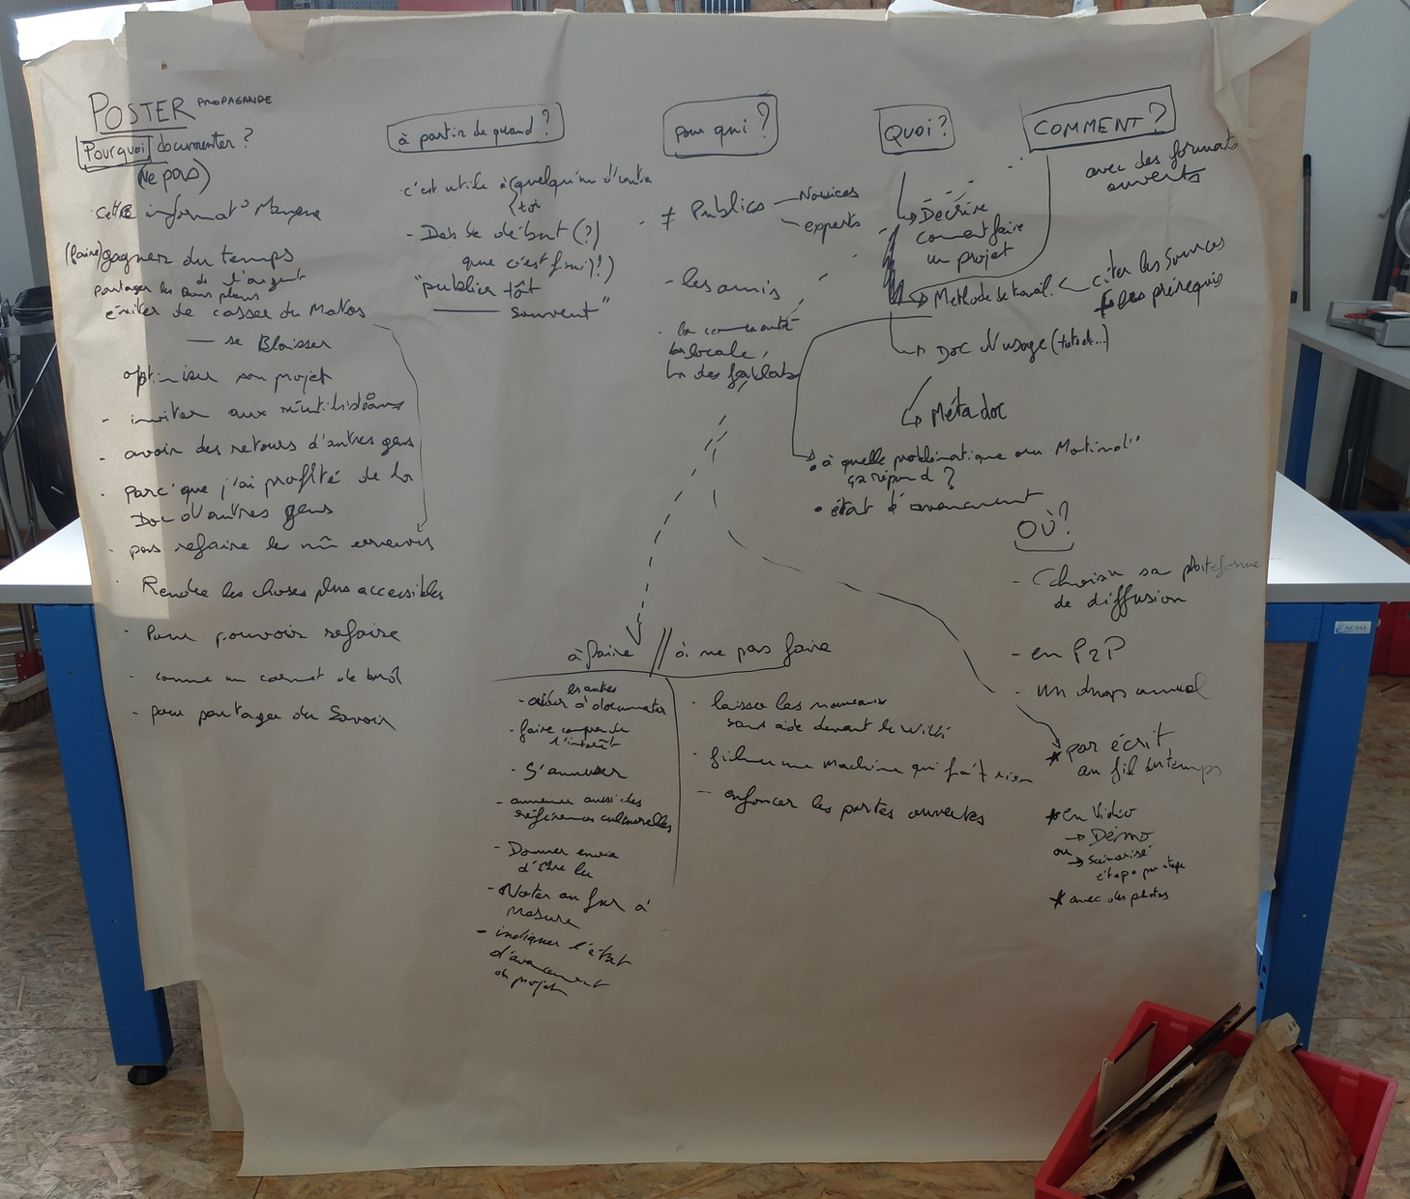 POSTER PROPAGANDE
Pourquoi documenter ?
(Ne pas)
cette informat° Manque
(faire) gagner du temps
de l'argent
partager les bons plans
éviter de casser du Matos
— se Blesser
optimiser son projet
- inviter aux réutilisations
- avoir des retours d'autres gens
- parc'que j'ai profité de la
Doc d'autres gens
- pas refaire les mm erreurs
- Rendre les choses plus accessibles
- Pour pouvoir refaire
- comme un carnet de bord
- pour partager du Savoir
à partir de quand ?
c'est utile à quelqu'un d'autre
toi
- Dès le début (?)
que c'est fini (!)
"publier tôt
—— souvent"
pour qui ?
≠ Publics
Novices
experts
- les amis
- la communauté
locale,
des fablabs
QUOI ?
Décrire
comment faire
un projet
Méthode de travail
Doc d'usage (tutos...)
Méta doc
• à quelle problématique ou Motivat°
ça répond ?
• état d'avancement
COMMENT ?
avec des formats
ouverts
citer les sources
+ les prérequis
OÙ ?
- Choisir sa plateforme
de diffusion
- en P2P
- un drap annuel
* par écrit
au fil du temps
* en Vidéo
→ Démo
ou → Scénarisé
étape par étape
* avec des photos
à faire // à ne pas faire
les autres
- aider à documenter
- faire comprendre
l'intérêt
- S'amuser
- amener aussi des
références culturelles
- Donner envie
d'être lu
- Noter au fur à
mesure
- indiquer l'état
d'avancement
du projet
- laisser les nouveaux
sans aide devant le Wiki
- filmer une machine qui fait rien
- enfoncer les portes ouvertes